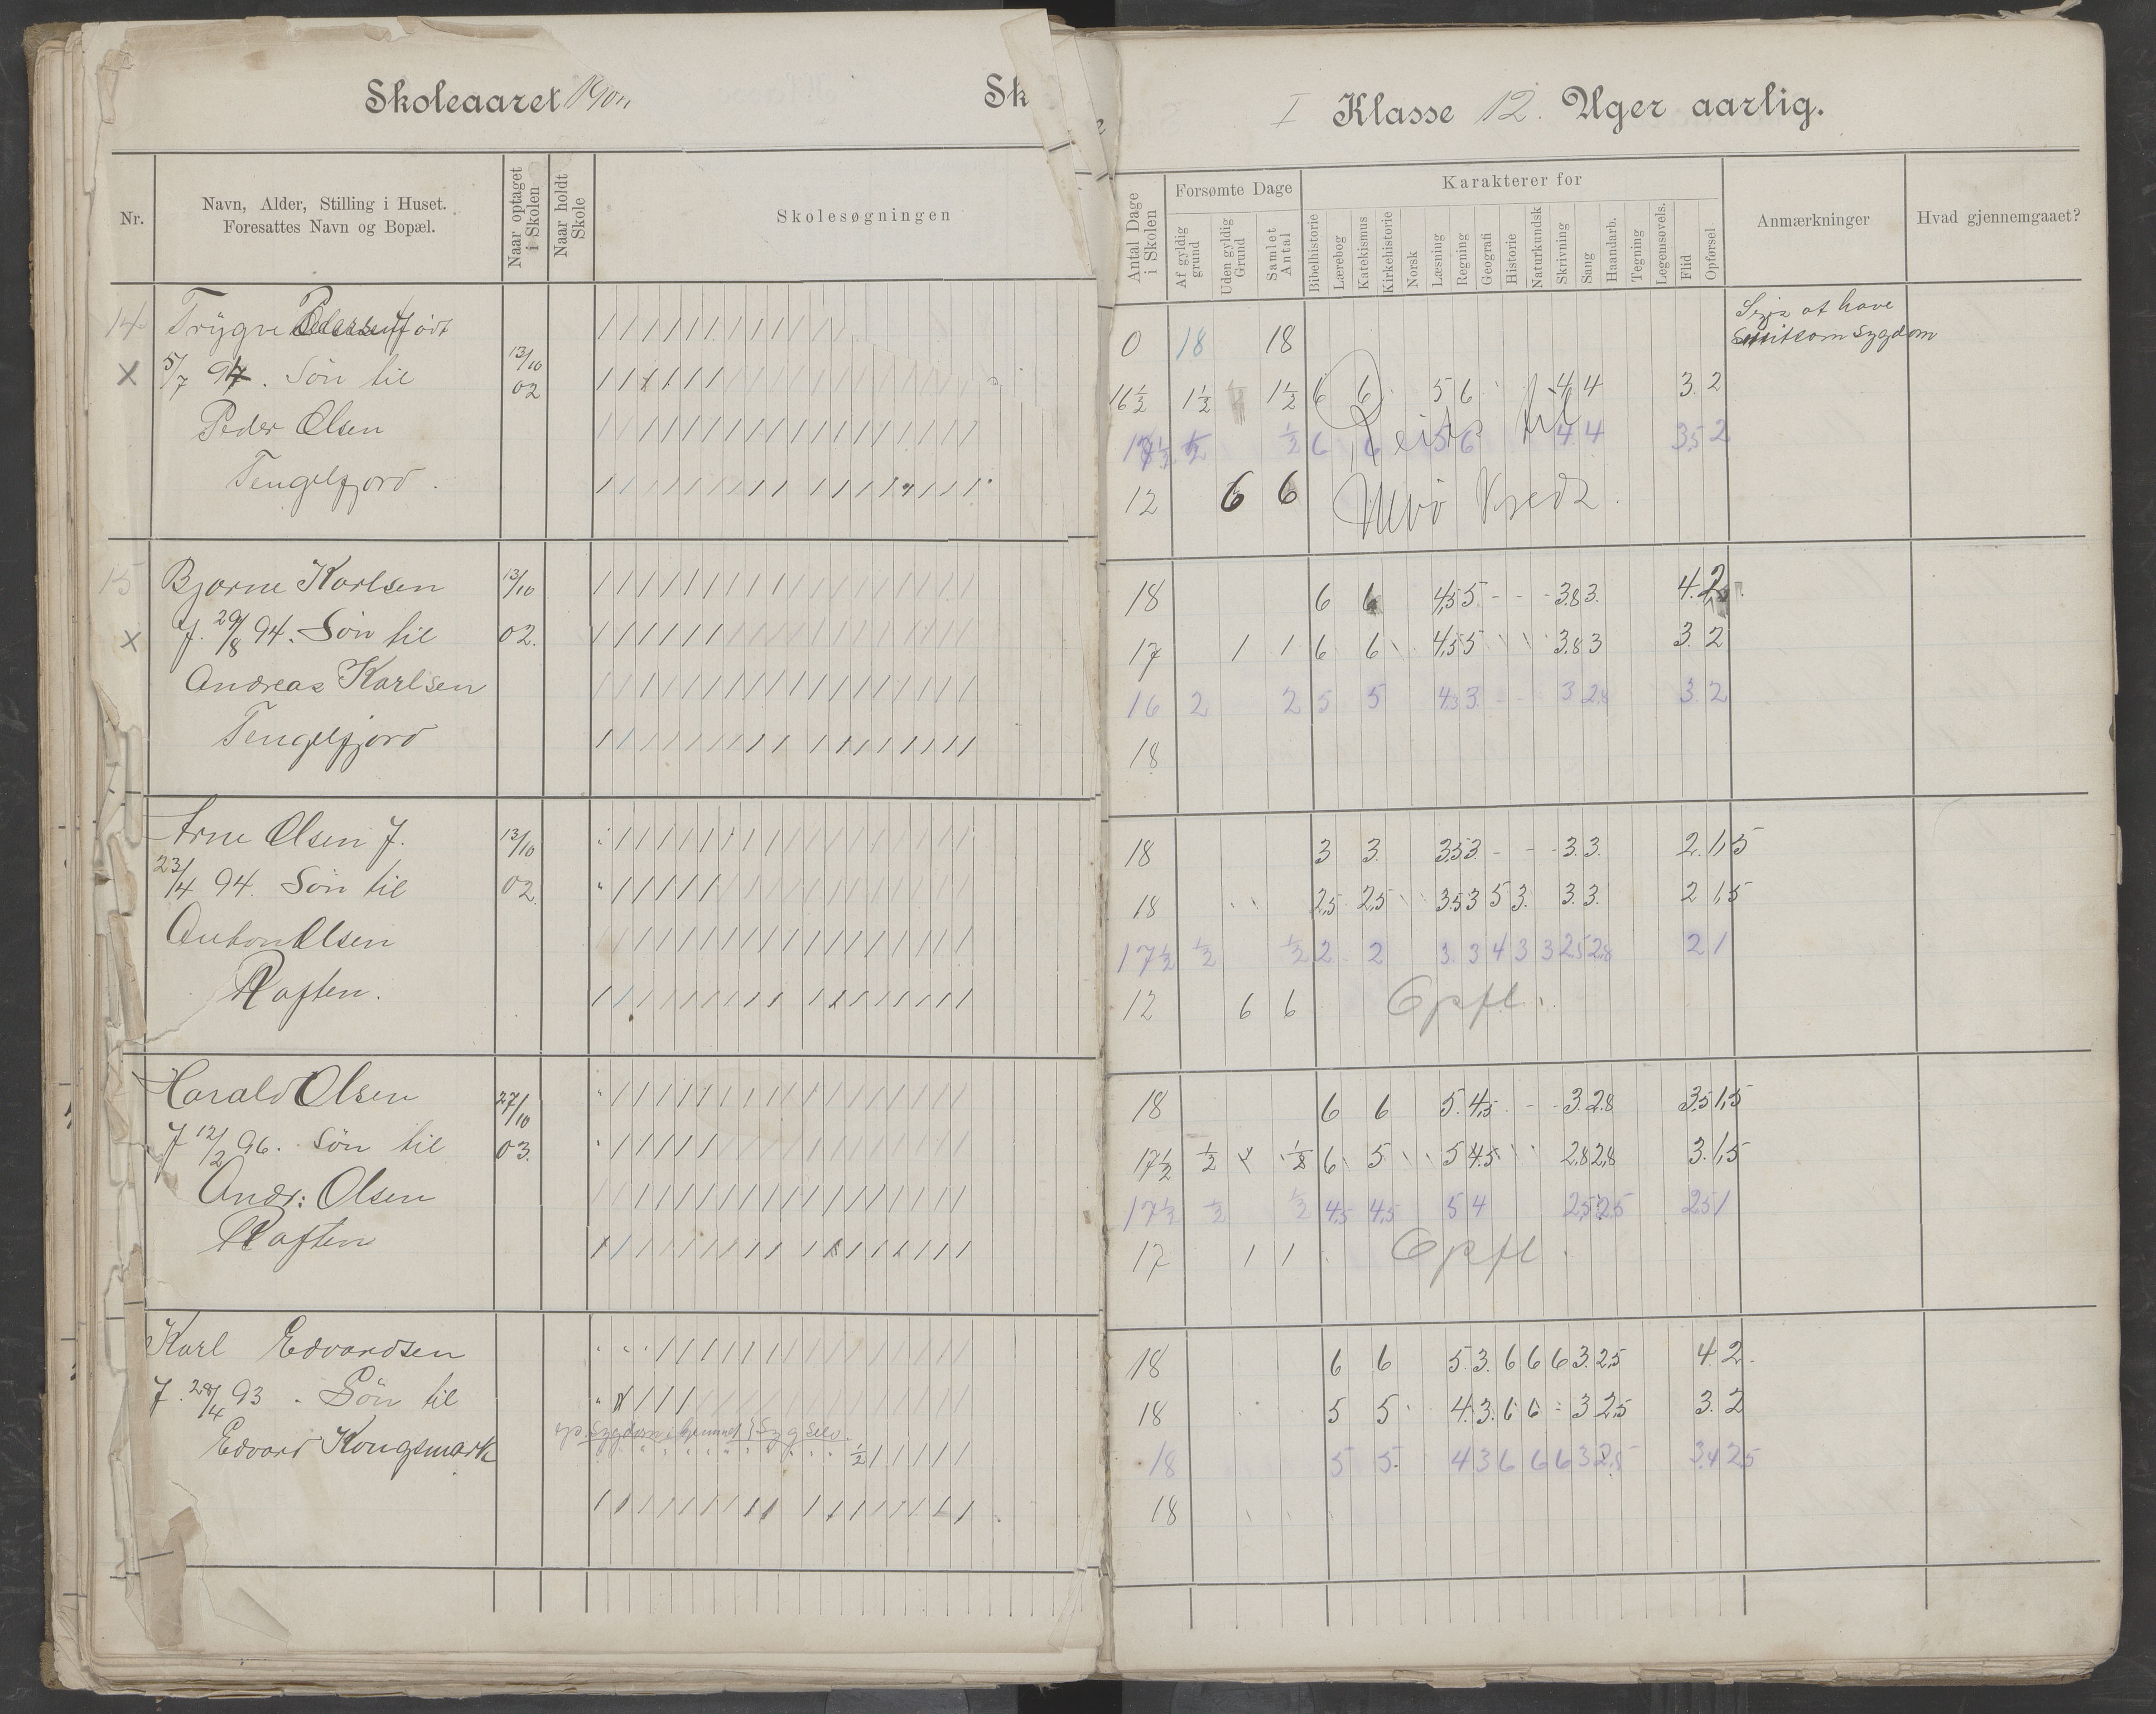 Skoleaaret
Sk
I Klasse 12. Uger aarlig.
Nr.
Navn, Alder, Stilling i Huset.
Foresattes Navn og Bopæl.
Naar optaget
i Skolen
Naar holdt
Skole
Skolesøgningen
Antal Dage
i Skolen
Forsømte Dage
Af gyldig
grund
Uden gyldig
Grund
Samlet
Antal
Karakterer for
Bibelhistorie
Lærebog
Katekismus
Kirkehistorie
Norsk
Læsning
Regning
Geografi
Historie
Naturkundsk
Skrivning
Sang
Haandarb.
Tegning
Legemsøvels.
Flid
Opførsel
Anmærkninger
Hvad gjennemgaaet?
14 Trygve Pedersen født
0 18 18
Siges at have
smitsom sygdom
X 5/7 94. Søn til 13/10 02
16 1/2 1 1/2 1 1/2 6 6 5 6 4 4 3. 2
Peder Olsen
1/2 6 6 5 6 4 4 3,5 2
Reist til
Tengelfjord.
12 6 6
15 Bjarne Karlsen 13/10
18 6 6 4,5 5 - - - 3.8 3. 4. 2
X f. 29/8 94. Søn til 02.
17 1 1 6 6 4,5 5 3.8 3 3. 2
Andreas Karlsen
16 2 2 5 5 3. 2
Tengelfjord
18
Arne Olsen f. 13/10
18 3 3. 3.5 3 - - - 3. 3. 2. 1,5
23/4 94. Søn til 02.
18 2,5 2,5 3.5 3 5 3. 3. 3. 2 1,5
Anton Olsen
17 1/2 1/2 1/2 2 2 3. 3 4 3 3 2.5 2,8 2 1
Raften.
12 6 6 Opfl.
Harald Olsen 27/10
18 6 6 5. 4,5 - - 3. 2.8 3.5 1,5
f 12/2 96. Søn til 03.
17 1/2 1/2 1/2 6 5 5 4.5 2.8 2,8 3. 1,5
Andr: Olsen
17 1/2 1/2 1/2 4,5 4,5 5 4 2,5 2.5 2.5 1
Raften
17 1 1 Opfl.
Karl Edvardsen
18 6 6 5. 3. 6 6 6 3. 2,5 4. 2.
f. 28/4 93. Søn til
18 5 5 4. 3. 6 6 3 2,5 3. 2
Edvard Kongsmark
18 5 5. 4 3 6 6 6 3 3,4 2,5
18